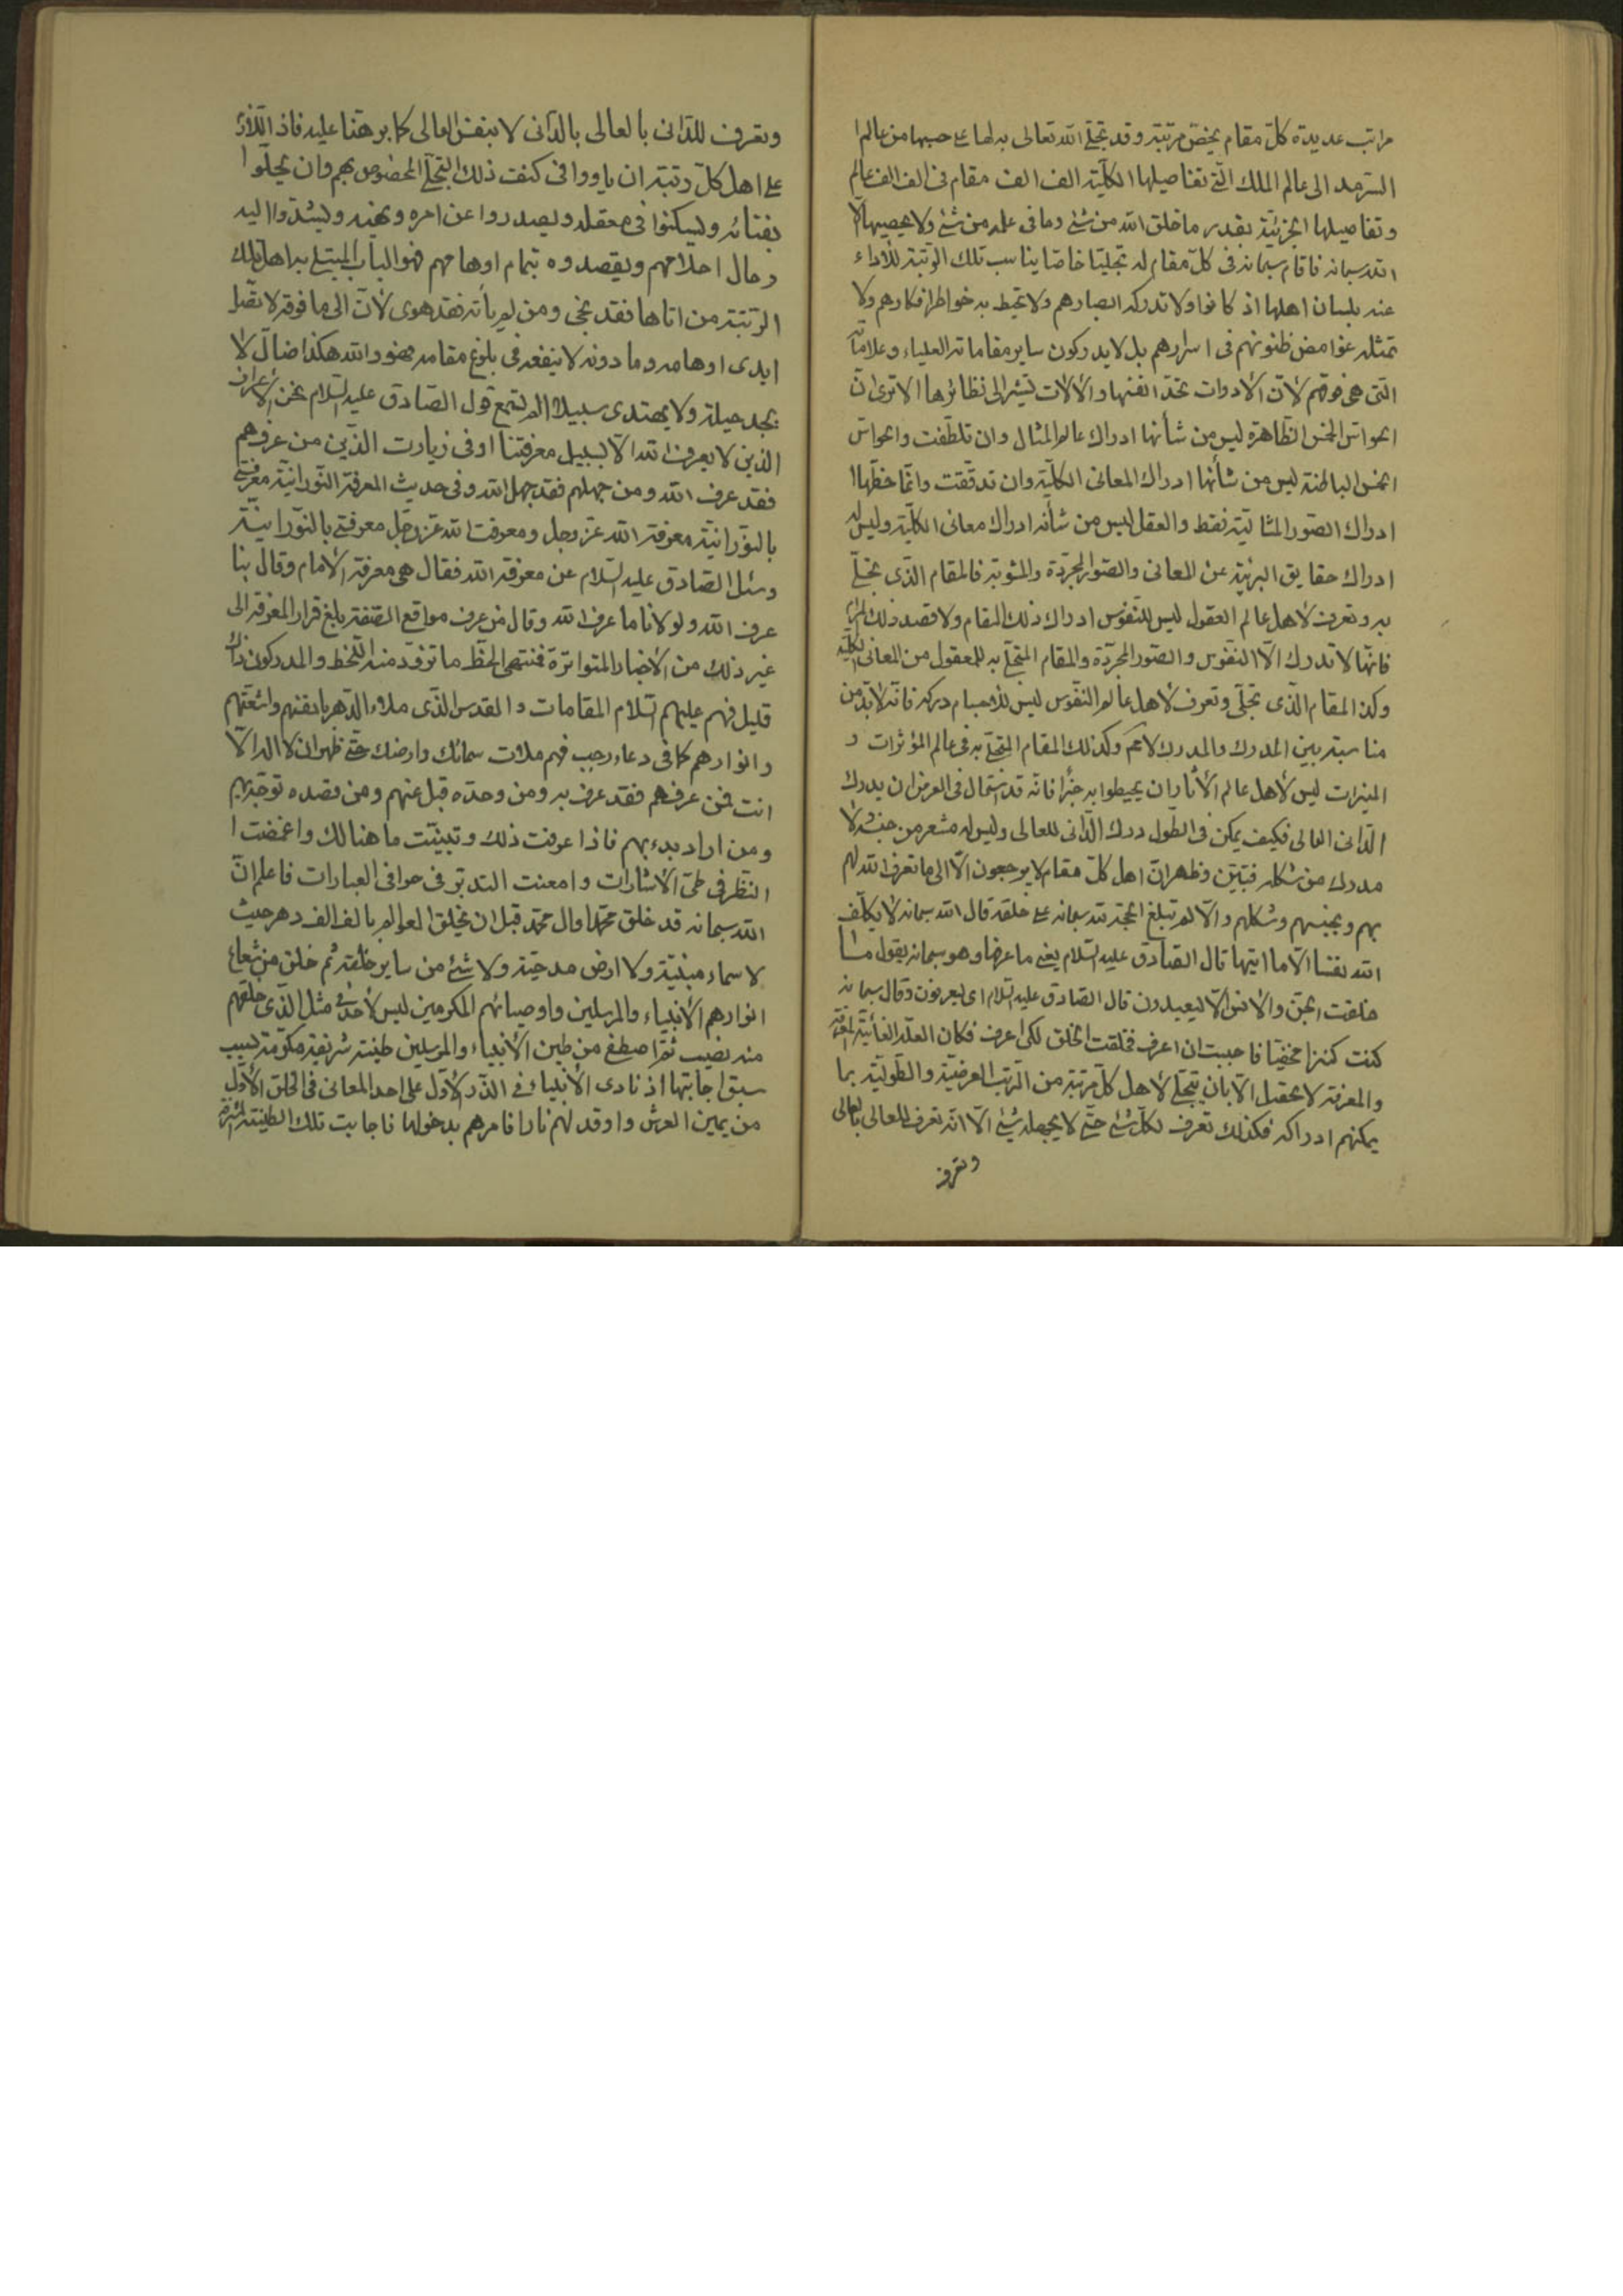 مراتب عديدة كلّ مقام يخصّ مرتبة وقد تجلّى الله تعالى به لها على حسبها من عالم ا
السّرمد الى عالم الملك الّتى تفاصيلها الكلّيّة الف الف مقام فى الف الف عالم
وتفاصيلها الجزئيّة بقدر ما خلق الله من شئ وما فى علمه من شئ ولا يحصيها الّا
الله سبحانه فاقام سبحانه فى كلّ مقام له تجلّيا خاصّا يناسب تلك الرّتبة للأداء
عنه بلسان اهلها اذ كانوا ولا تدركه ابصارهم ولا تحيط به خواطر افكارهم ولا
تمثله غوامض ظنونهم فى اسرارهم بل لا يدركون ساير مقاماته العلياء وعلاماته
الّتى هى فوقهم لأنّ الأدوات تحدّ انفسها والألات تشير الى نظائرها الا ترى انّ
الحواسّ الخمس الظّاهرة ليس من شأنها ادراك عالم المثال وان تلطّفت والحواسّ
الخمس الباطنة ليس من شأنها ادراك المعانى الكلّيّة وان تدقّقت وانّما حظّها ا
ادراك الصّور المثاليّة فقط والعقل ليس من شأنه ادراك معانى الكلّيّة وليس له
ادراك حقايق البريّة عن المعانى والصّور المجرّدة والمشوبة فالمقام الّذى تجلّى
به وتعرف لأهل عالم العقول ليس للنّفوس ادراك ذلك المقام ولا قصد ذلك المرام
فانّها لا تدرك الّا النّفوس والصّور المجرّدة والمقام المتجلّى به للعقول من المعانى الكلّيّة
وكذا المقام الّذى تجلّى وتعرف لأهل عالم النّفوس ليس للأجسام دركه فانّه لا بدّ من
مناسبة بين المدرك والمدرك لا عمّ وكذلك المقام المتجلّى به فى عالم المؤثرات و
المنيرات ليس لأهل عالم الأثار ان يحيطوا به خبرا فانّه قد استحال فى العرض ان يدرك
الدّانى العالى فكيف يمكن فى الطّول درك الدّانى للعالى وليس له مشعر من جنسه ولا
مدرك من شكله فتبيّن وظهر انّ اهل كلّ مقام لا يرجعون الّا الى ما تعرف الله لهم
بهم وبجنسهم وشكلهم والّا لم تبلغ الحجّة لله سبحانه على خلقه قال الله سبحانه لا يكلّف
الله نفسا الّا ما اتيها قال الصّادق عليه السّلام يعنى ما عرفها وهو سبحانه يقول ما
خلقت الجنّ والأنس الّا ليعبدون قال الصّادق عليه السّلام اى ليعرفون وقال سبحانه
كنت كنزا مخفيّا فاحببت ان اعرف فخلقت الخلق لكى اعرف فكان العلّة الغائيّة المعرفة
والمعرفة لا تحصل الّا بان يتجلّى لأهل كلّ مرتبة من الرّتب العرضيّة والطّوليّة بما
يمكنهم ادراكه فكذلك تعرف لكلّ شئ حتّى لا يجهله شئ الّا انّه تعرف للعالى بالعالى
وتعرف
وتعرف للدّانى بالعالى بالدّانى لا بنفس العالى كما برهنّا عليه فاذا اللّازم
على اهل كلّ رتبة ان ياووا فى كنف ذلك التّجلّى المخصوص بهم وان يحلّوا
بفنائه وليسكنوا فى معقله وليصدروا عن امره ونهيه وليشدّوا اليه
رحال احلامهم ويقصدوه بتمام اوهامهم فهو الباب المبتلى به اهل تلك
الرّتبة من اتاها فقد نجى ومن لم يأته فقد هوى لأنّ الى ما فوقه لا تصل
ايدى اوهامه وما دونه لا ينفعه فى بلوغ مقامه فهو والله هكذا ضالّ لا
يجد حيلة ولا يهتدى سبيلا الم تسمع قول الصّادق عليه السّلام نحن الأعراف
الّذين لا يعرف الله الّا بسبيل معرفتنا او فى زيارت الّذين من عرفهم
فقد عرف الله ومن جهلهم فقد جهل الله وفى حديث المعرفة النّورانيّة معرفتى
بالنّورانيّة معرفة الله عزّ وجل ومعرفت الله عزّ وجل معرفتى بالنّورانيّة
وسئل الصّادق عليه السّلام عن معرفة الله فقال هى معرفة الأمام وقال بنا
عرف الله ولولانا ما عرف الله وقال من عرف مواقع الصّفة بلغ قرار المعرفة الى
غير ذلك من الأخبار المتواترة فمنتهى الحظّ ما تزوّد منه اللّحظ والمدركون ذاك
قليل فهم عليهم السّلام المقامات والقدس الّذى ملاء الدّهر بانفسهم واشعّتهم
وانوارهم كما فى دعاء رجب فبهم ملأت سمائك وارضك حتّى ظهر ان لا اله الّا
انت فمن عرفهم فقد عرف به ومن وحّده قبل عنهم ومن قصده توجّه بهم
ومن اراد بدء بهم فاذا عرفت ذلك وتبيّنت ما هنالك واغمضت ا
النّظر فى طىّ الأشارات وامعنت التدبّر فى حوافى العبارات فاعلم انّ
الله سبحانه قد خلق محمّدا وال محمّد قبل ان يخلق العوالم بالف الف دهر حيث
لا سماء مبنيّة ولا ارض مدحيّة ولا شئ من ساير خلقه ثم خلق من شعاع
انوارهم الأنبياء والمرسلين واوصيائهم المكرمين ليس لأحد فى مثل الّذى خلقهم
منه نصيب ثمّ اصطفى من طين الأنبياء والمرسلين طينة شريفة مكرّمة بسبب
سبق اجابتها اذ نادى الأنبياء فى الذّر الأوّل على احد المعانى فى الخلق الأوّل
من يمين العرش واوقد لهم نارا فامرهم بدخولها فاجابت تلك الطّينة الشّريفة